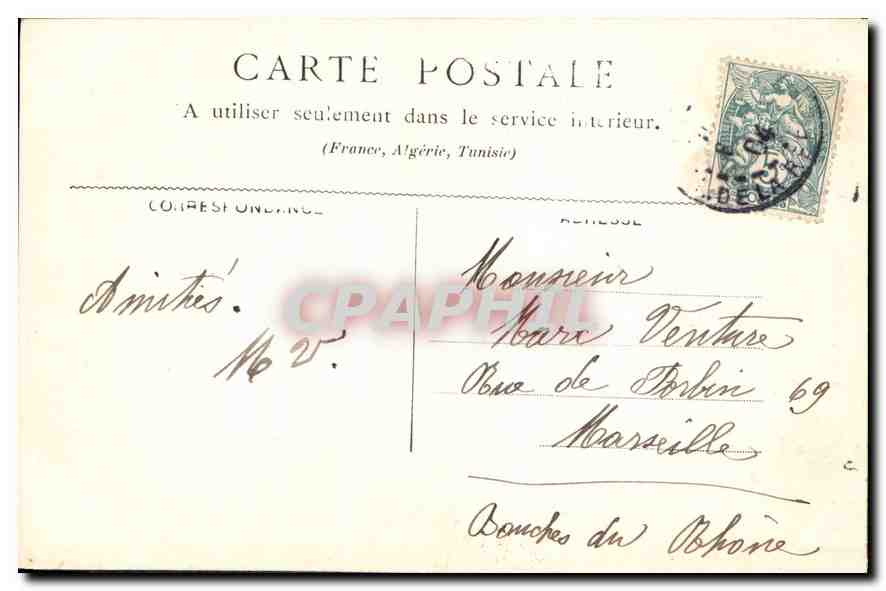 CARTE POSTALE
A utiliser seulement dans le service intérieur.
(France, Algérie, Tunisie)
CORRESPONDANCE
ADRESSE
Amitiés.
M V.
Monsieur
Marc Venture
Rue de Forbin 69
Marseille
Bouches du Rhône
CPAPHIL
04
DE LA